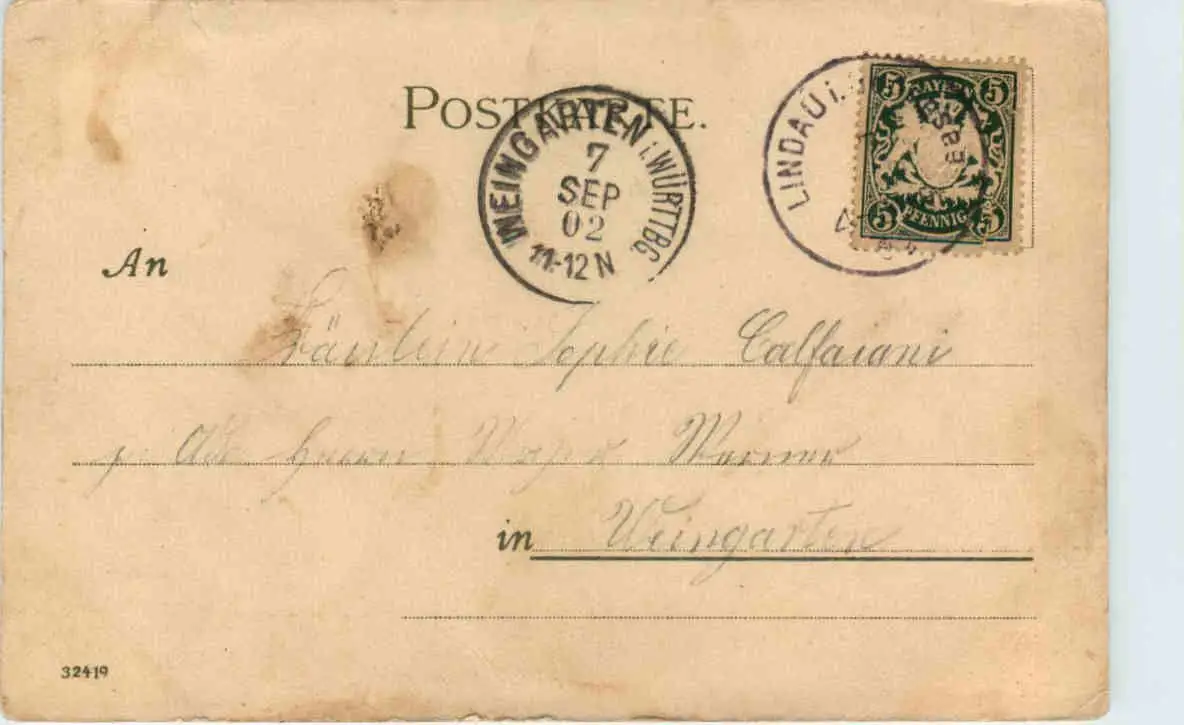 POSTKARTE.
WEINGARTEN i. WÜRTTBG.
7
SEP
02
11-12 N
LINDAU i.
5 BAYERN 5
5 PFENNIG 5
An
Fräulein Sophie Calfaiani
Herrn Werner
in Weingarten
32419